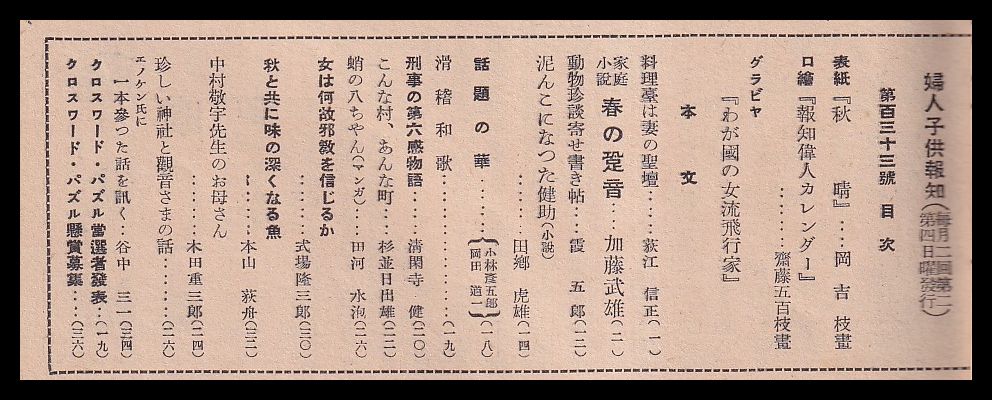 婦人子供報知(毎月二回第二第四日曜發行)
第百三十三號 目次
表紙『秋晴』‥‥岡吉枝畫
口繪『報知偉人カレンダー』
‥‥‥‥齋藤五百枝畫
グラビヤ
『わが國の女流飛行家』
本文
料理臺は妻の聖壇‥‥‥荻江信正(一)
家庭小説 春の跫音‥‥加藤武雄(二)
動物珍談寄せ書き帖‥‥霞五郎(一二)
泥んこになつた健助(小説)
‥‥‥‥田郷虎雄(一四)
話題の華‥‥‥{小林彦五郎 岡田道一}(一八)
滑稽和歌‥‥‥‥‥‥‥(一九)
刑事の第六感物語‥‥‥清閑寺健(二〇)
こんな村、あんな町‥‥杉並日田雄(二二)
蛸の八ちやん(マンガ)‥‥田河水泡(二六)
女は何故邪教を信じるか
‥‥‥‥式場隆三郎(三〇)
秋と共に味の深くなる魚
‥‥‥‥本山荻舟(三二)
中村敬宇先生のお母さん
‥‥‥‥木田重三郎(二四)
珍しい神社と觀音さまの話‥‥‥(二六)
エノケン氏に
一本參つた話を訊く‥‥谷中三一(三四)
クロスワード・パズル當選者發表‥‥(一九)
クロスワード・パズル懸賞募集‥‥(三六)